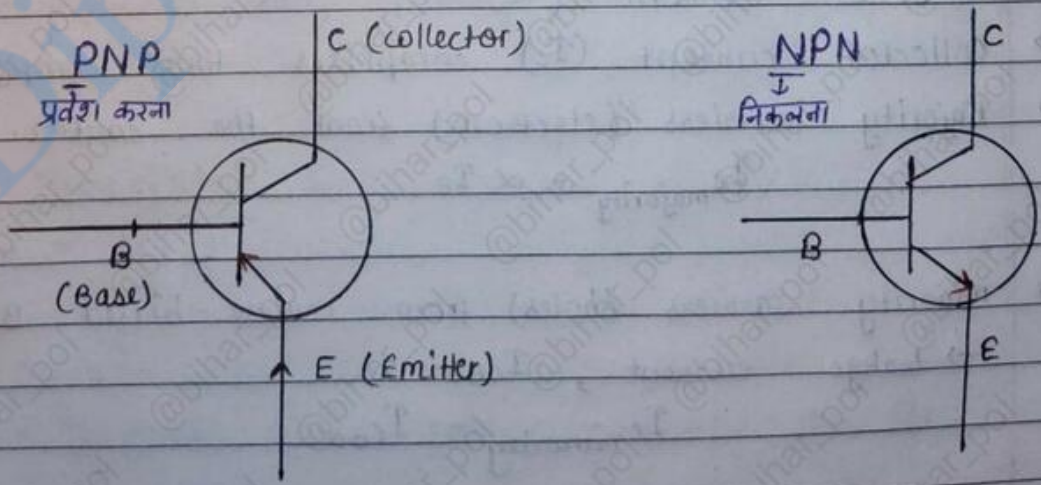 PNP
प्रवेश करना
C (collector)
B
(Base)
E (Emitter)
NPN
निकलना
C
B
E
@bihar_pol